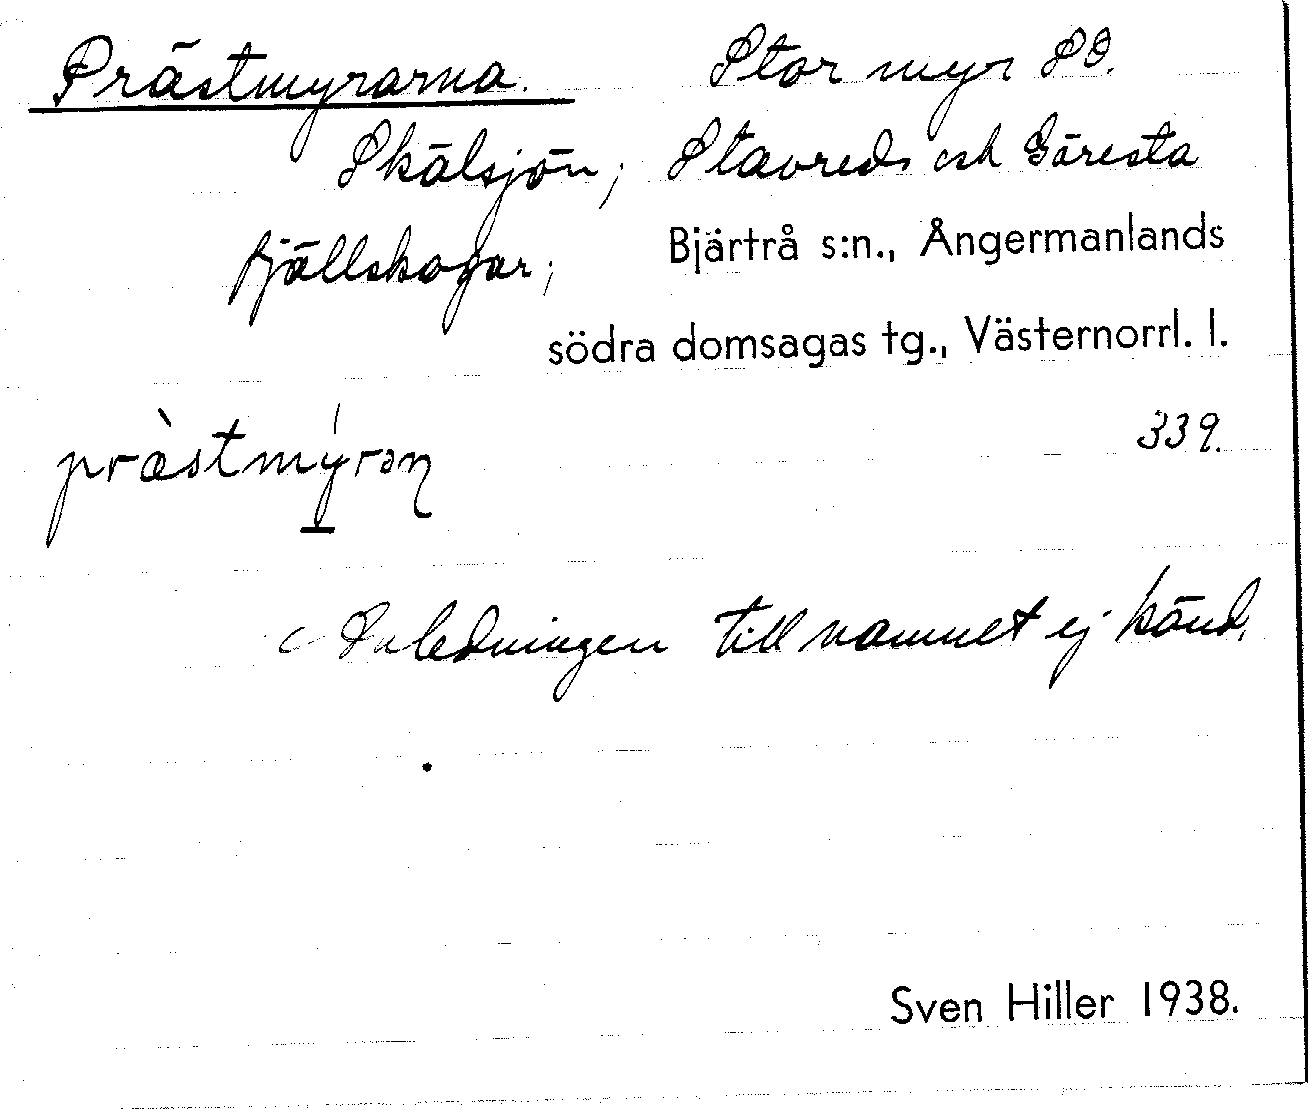 Prästmyrarna. Stor myr SO.
Skälsjön; Stavreds och Gåresta
fjällskogar; Bjärtrå s:n., Ångermanlands
södra domsagas tg., Västernorrl. l.
339.
præ̀stmýrɑn
Anledningen till namnet ej känd.
Sven Hiller 1938.